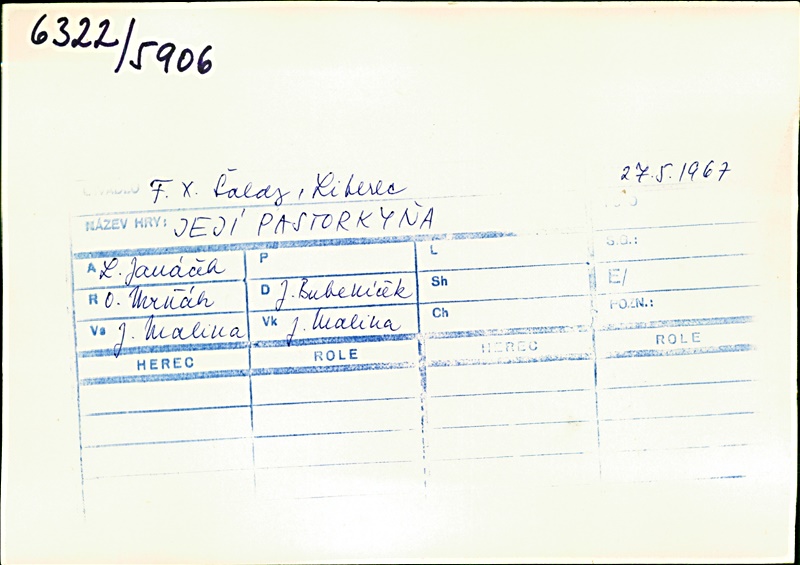 6322/5906
27.5.1967
DIVADLO F. X. Šaldy, Liberec
NÁZEV HRY: JEJÍ PASTORKYŇA
A L. Janáček P L G.O.:
R O. Mrňák D J. Bubeníček Sh E/
Vs J. Malina Vk J. Malina Ch POZN.:
HEREC ROLE HEREC ROLE